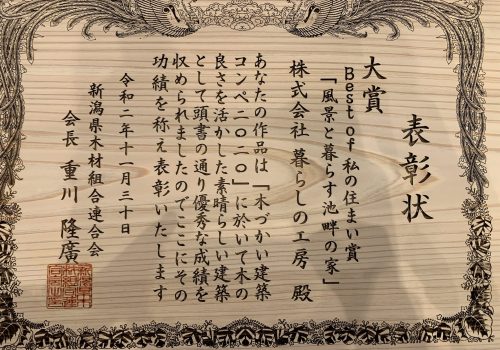 表彰状
大賞
Best of 私の住まい賞
「風景と暮らす池畔の家」
株式会社 暮らしの工房 殿
あなたの作品は「木づかい建築
コンペ二〇二〇」に於いて木の
良さを活かした素晴らしい建築
として頭書の通り優秀な成績を
収められましたのでここにその
功績を称え表彰いたします
令和二年十一月三十日
新潟県木材組合連合会
会長 重川 隆廣